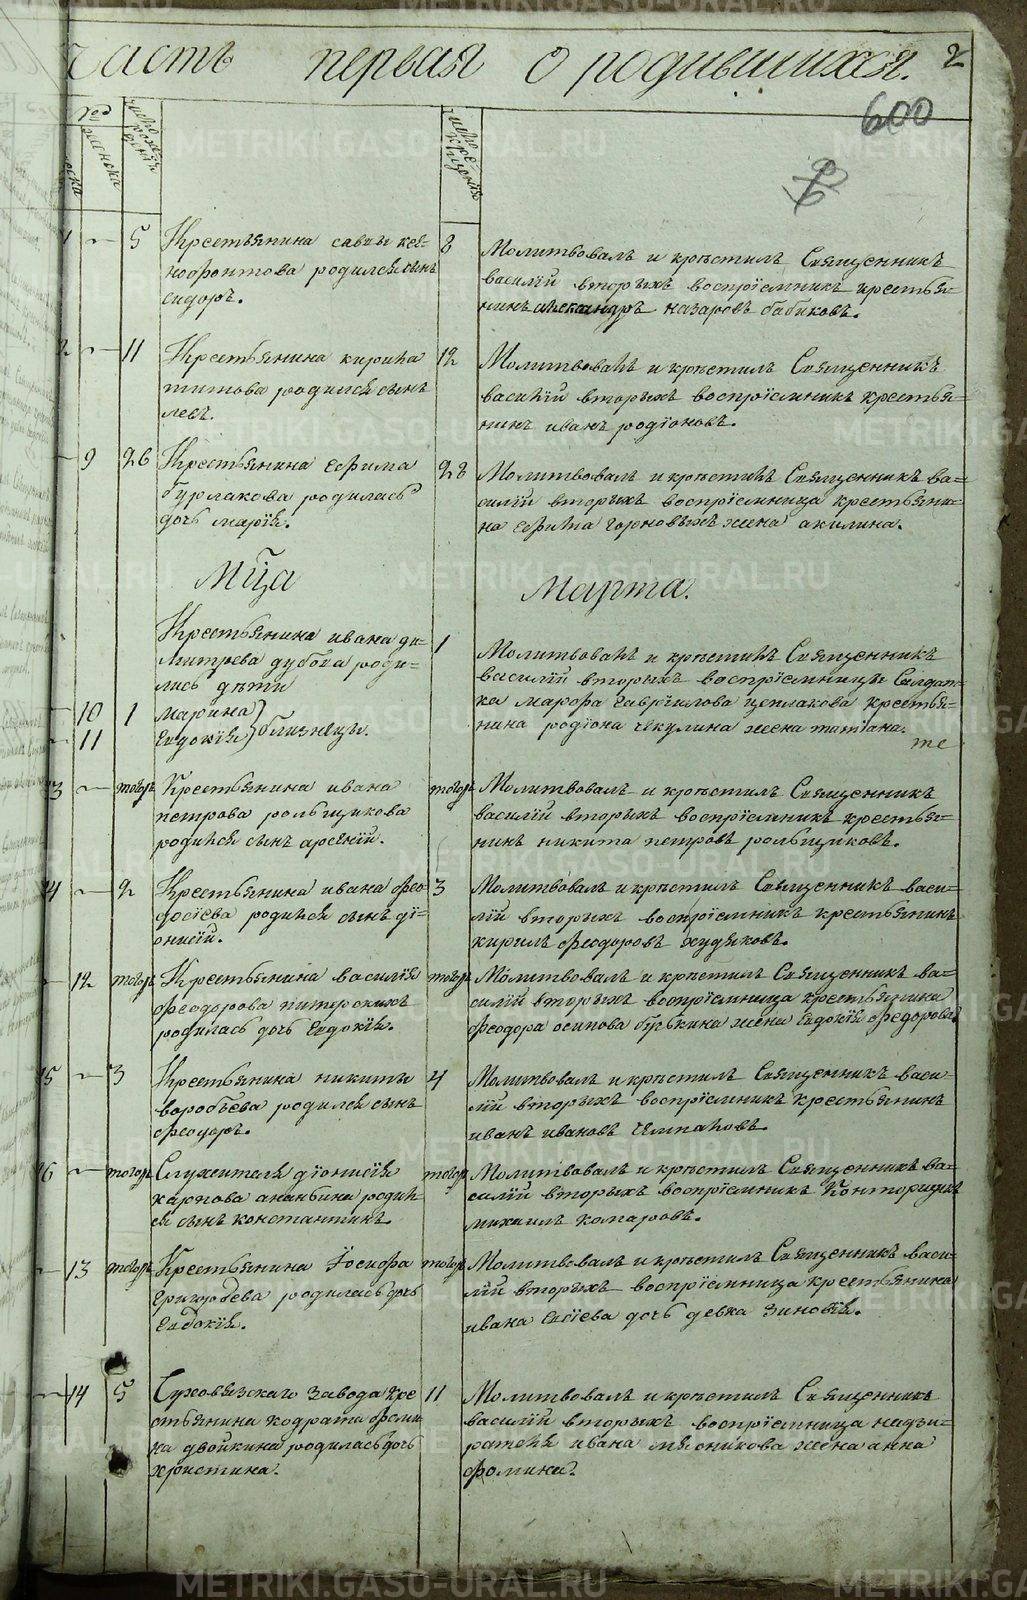 часть первая о родившихся. 2
600
Крестьянина савы ксе=
нофонтова родился сынъ
сидоръ.
5
8
Молитвовалъ и крѣстилъ Священникъ
василій вторыхъ воспріемникъ крестья=
нинъ александръ назаровъ бабиковъ.
11
Крестьянина кирила
титова родился сынъ
левъ.
12
Молитвовалъ и крѣстилъ Священникъ
василій вторыхъ воспріемникъ крестья=
нинъ иванъ родіоновъ.
9 26
Крестьянина Ефима
бурлакова родилась
дочь марія.
28
Молитвовалъ и крѣстилъ Священникъ ва=
силій вторыхъ воспріемница крестьяни=
на Ефима горновыхъ жена акилина.
Мца Марта.
Крестьянина ивана ди=
митрева дубова роди=
лись дѣти
10 1 Марина
11 Евдокія близнецы.
1
Молитвовалъ и крѣстилъ Священникъ
василій вторыхъ воспріемницы Салдат=
ка марфа гаврилова цеплакова крестья=
нина родіона чекулина жена татіана.
13 тогоже
Крестьянина ивана
петрова рольщикова
родился сынъ арсеній.
тогоже
Молитвовалъ и крѣстилъ Священникъ
василій вторыхъ воспріемникъ крестья=
нинъ никита петровъ рольщиковъ.
14 2
Крестьянина ивана фео=
досіева родился сынъ ді=
онисій.
3
Молитвовалъ и крѣстилъ Священникъ васи=
лій вторыхъ воспріемникъ крестьянинъ
кирилъ феодоровъ худяковъ.
12 тогоже
Крестьянина василія
феодорова питерскихъ
родилась дочь Евдокія.
тогоже
Молитвовалъ и крѣстилъ Священникъ ва=
силій вторыхъ воспріемница крестьянина
феодора осипова жена Евдокія федорова
15 3
Крестьянина никиты
воробьева родился сынъ
феодоръ.
4
Молитвовалъ и крѣстилъ Священникъ васи=
лій вторыхъ воспріемникъ крестьянинъ
иванъ ивановъ
16 тогоже
Служителя діонисія
карпова ананьина родил=
ся сынъ константинъ.
тогоже
Молитвовалъ и крѣстилъ Священникъ ва=
силій вторыхъ воспріемникъ Конторщикъ
михаилъ комаровъ.
13 тогоже
Крестьянина Іосифа
родилась дочь
Евдокія.
тогоже
Молитвовалъ и крѣстилъ Священникъ васи=
лій вторыхъ воспріемница крестьянина
ивана Евсіева дочь девка Зиновія.
14 5
Суховязскаго Завода кре
стьянина кодрата
двойкина родилась дочь
христина.
11
Молитвовалъ и крѣстилъ Священникъ
василій вторыхъ воспріемница надзи=
рателя ивана мясникова жена анна
фомина.
METRIKI.GASO-URAL.RU